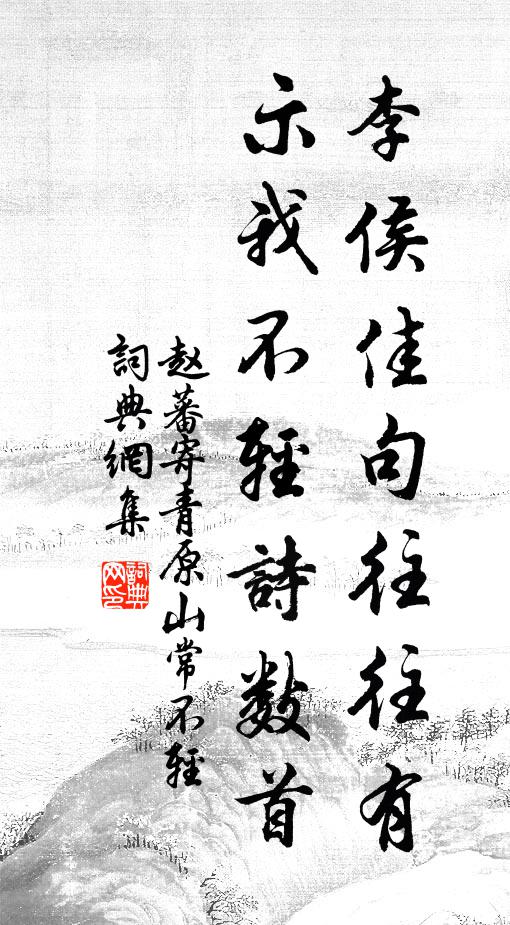 李侯佳句往往有
示我不輕詩數首
赵蕃寄青原山常不輕
詞典網集
詞典网印